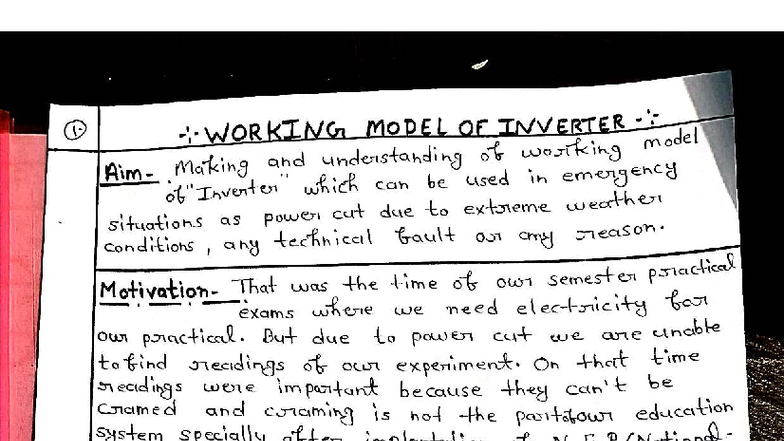 ①
-:- WORKING MODEL OF INVERTER -:-
Aim- Making and understanding of working model
of "Inverter" which can be used in emergency
situations as power cut due to extreme weather
conditions, any technical fault or any reason.
Motivation- That was the time of our semester practical
exams where we need electricity for
our practical. But due to power cut we are unable
to find readings of our experiment. On that time
readings were important because they can't be
cramed and craming is not the part of our education
system specially after of N.E.P (National-